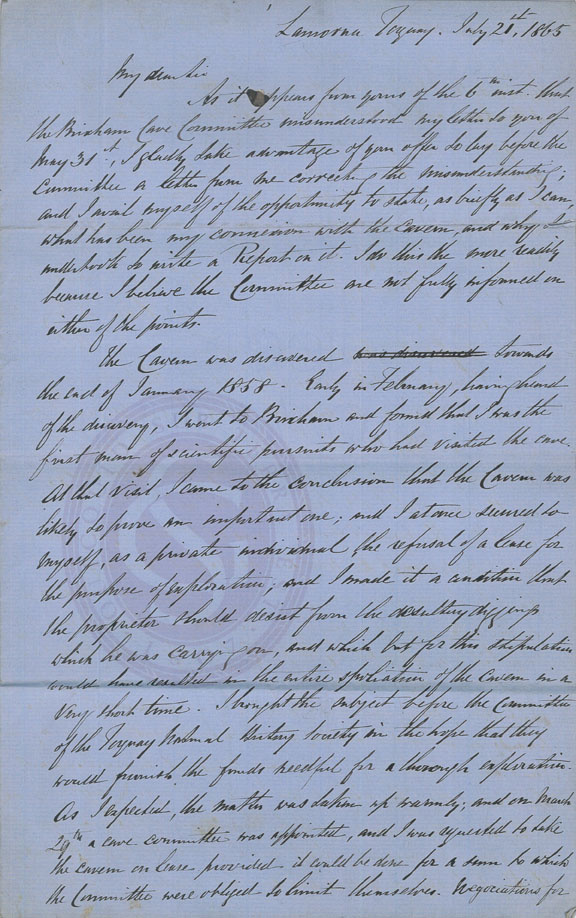 Lamorna Torquay. July 21st, 1865
My dear Sir
As it appears from yours of the 6th inst. that
the Brixham Cave Committee misunderstood my letter to you of
May 31st, I gladly take advantage of your offer to lay before the
Committee a letter from me correcting the misunderstanding;
and I avail myself of the opportunity to state, as briefly as I can,
what has been my connexion with the cavern, and why I
undertook to write a Report on it. I do this the more readily
because I believe the Committee are not fully informed on
either of the points.
The Cavern was discovered was discovered towards
the end of January 1858. Early in February, having heard
of the discovery, I went to Brixham and found that I was the
first man of scientific pursuits who had visited the cave.
At that visit, I came to the conclusion that the Cavern was
likely to prove an important one; and I at once secured to
myself, as a private individual the refusal of a lease for
the purpose of exploration; and I made it a condition that
the proprietor should desist from the desultory diggings
which he was carrying on, and which but for this stipulation
would have resulted in the entire spoliation of the cavern in a
very short time. I brought the subject before the Committee
of the Torquay Natural History Society in the hope that they
would furnish the funds needful for a thorough exploration.
As I expected, the matter was taken up warmly; and on March
29th a cave committee was appointed, and I was requested to take
the cavern on lease provided it could be done for a sum to which
the Committee were obliged to limit themselves. Negociations for